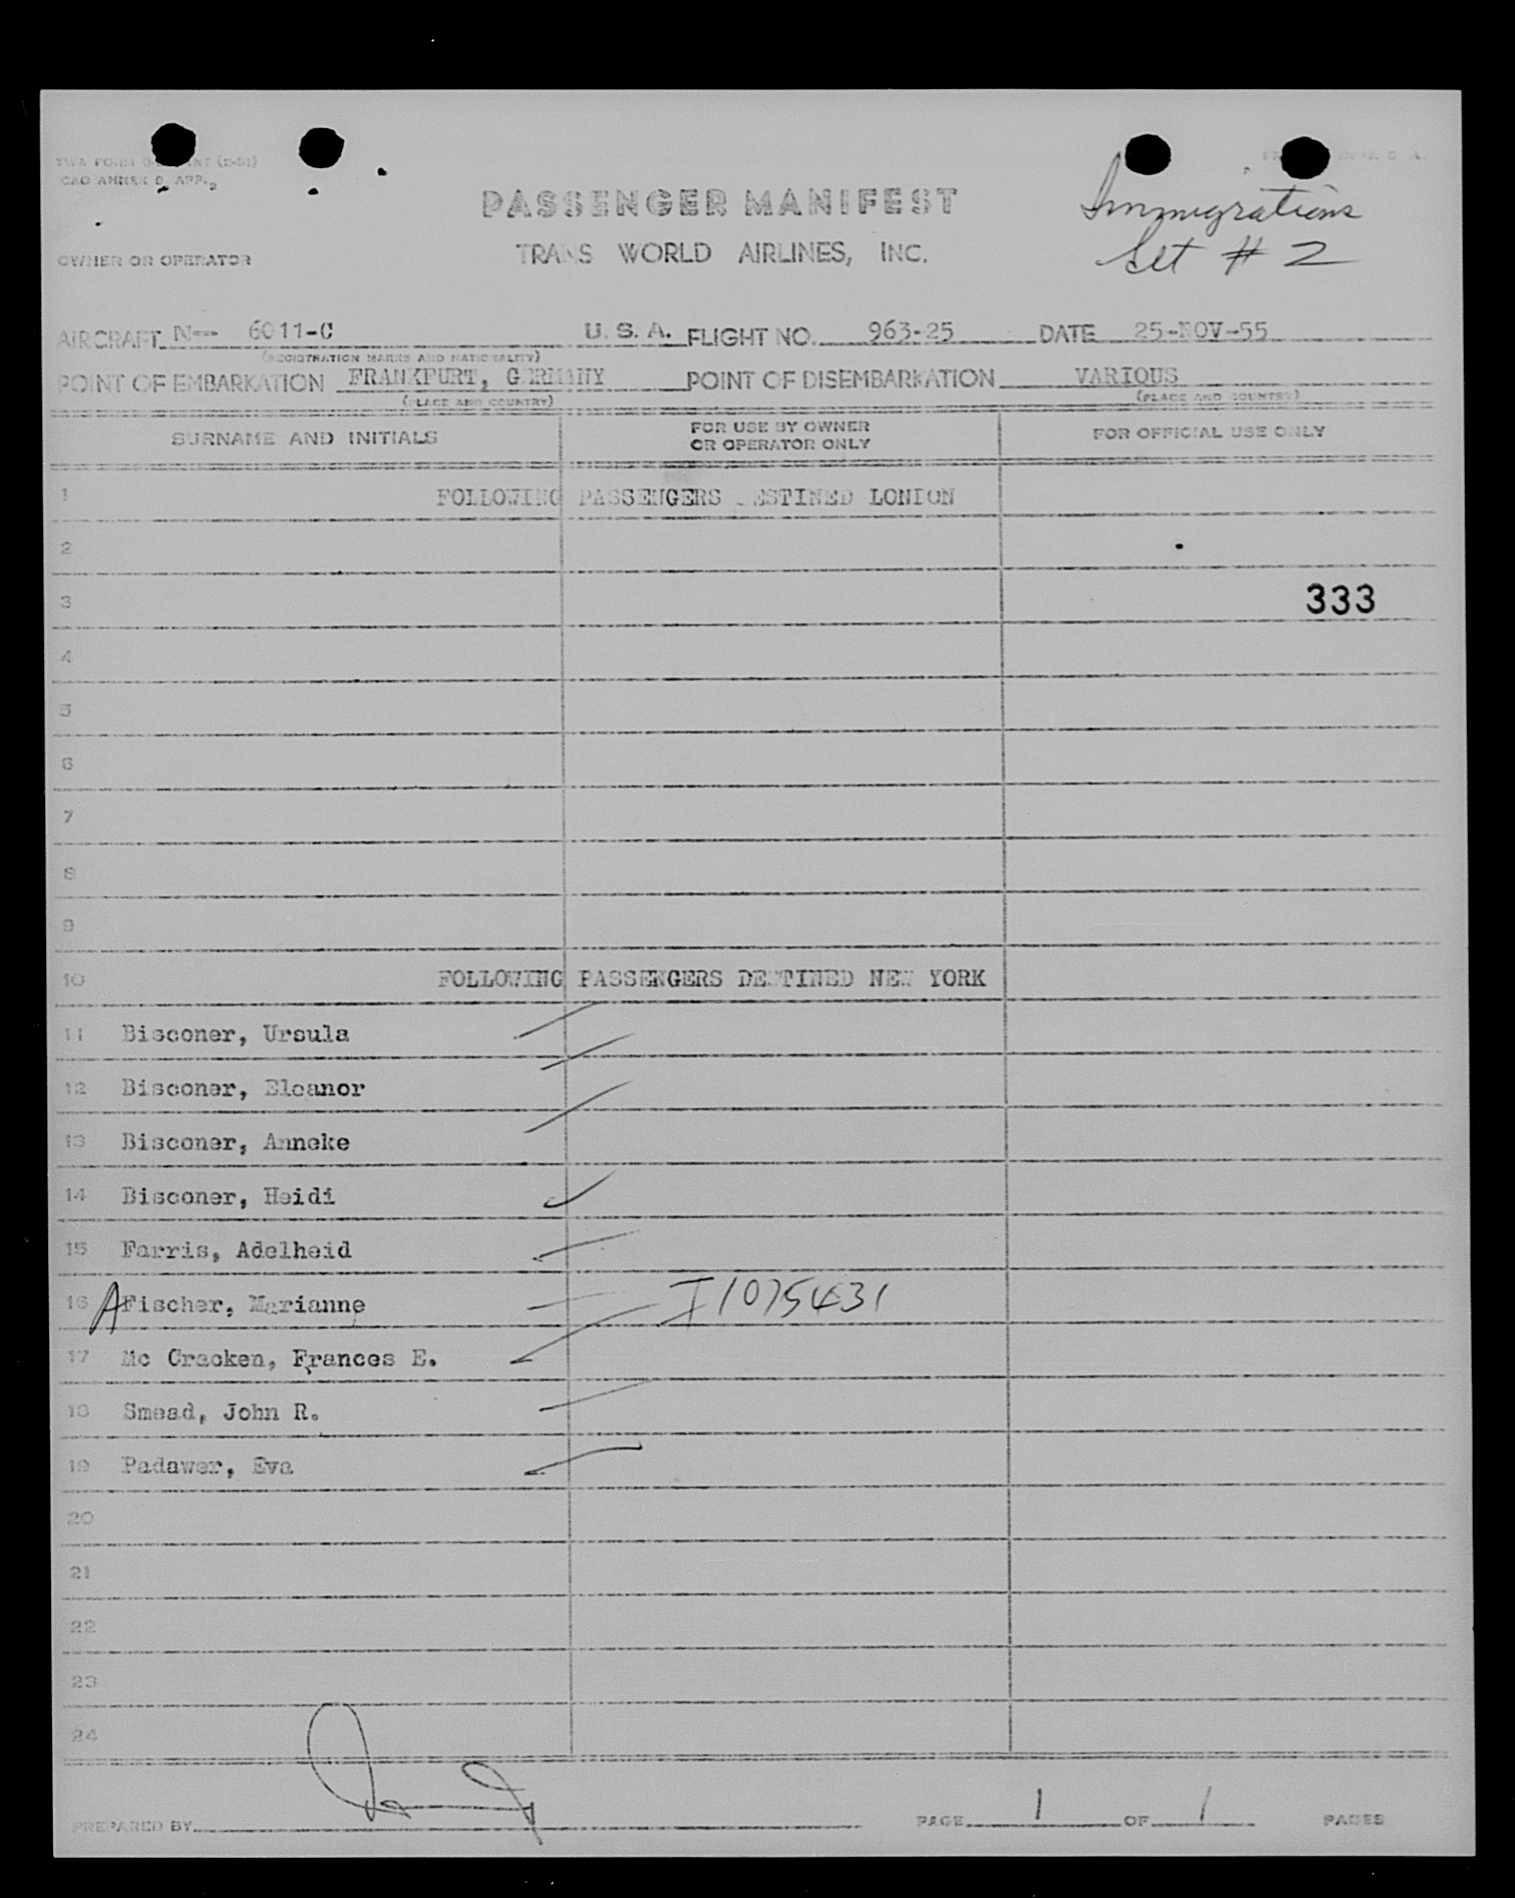 ICAO ANNEX 9, APP. 2
PASSENGER MANIFEST
Immigrations
Set # 2
OWNER OR OPERATOR
TRANS WORLD AIRLINES, INC.
AIRCRAFT N-- 6011-C U. S. A. FLIGHT NO. 963-25 DATE 25-NOV-55
(REGISTRATION MARKS AND NATIONALITY)
POINT OF EMBARKATION FRANKFURT, GERMANY POINT OF DISEMBARKATION VARIOUS
(PLACE AND COUNTRY) (PLACE AND COUNTRY)
SURNAME AND INITIALS FOR USE BY OWNER OR OPERATOR ONLY FOR OFFICIAL USE ONLY
1 FOLLOWING PASSENGERS DESTINED LONDON
2
3 333
4
5
6
7
8
9
10 FOLLOWING PASSENGERS DESTINED NEW YORK
11 Bisconer, Ursula
12 Bisconer, Eleanor
13 Bisconer, Anneke
14 Bisconer, Heidi
15 Farris, Adelheid
16 A Fischer, Marianne I1075431
17 Mc Cracken, Frances E.
18 Smead, John R.
19 Padawer, Eva
20
21
22
23
24
PREPARED BY PAGE 1 OF 1 PAGES